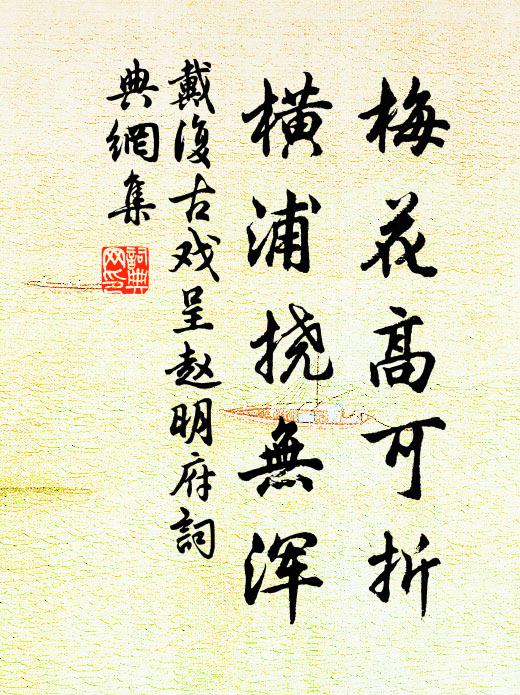 梅花高可折
横浦挠無浑
戴復古戏呈赵明府詞
典網集
詞典
网印